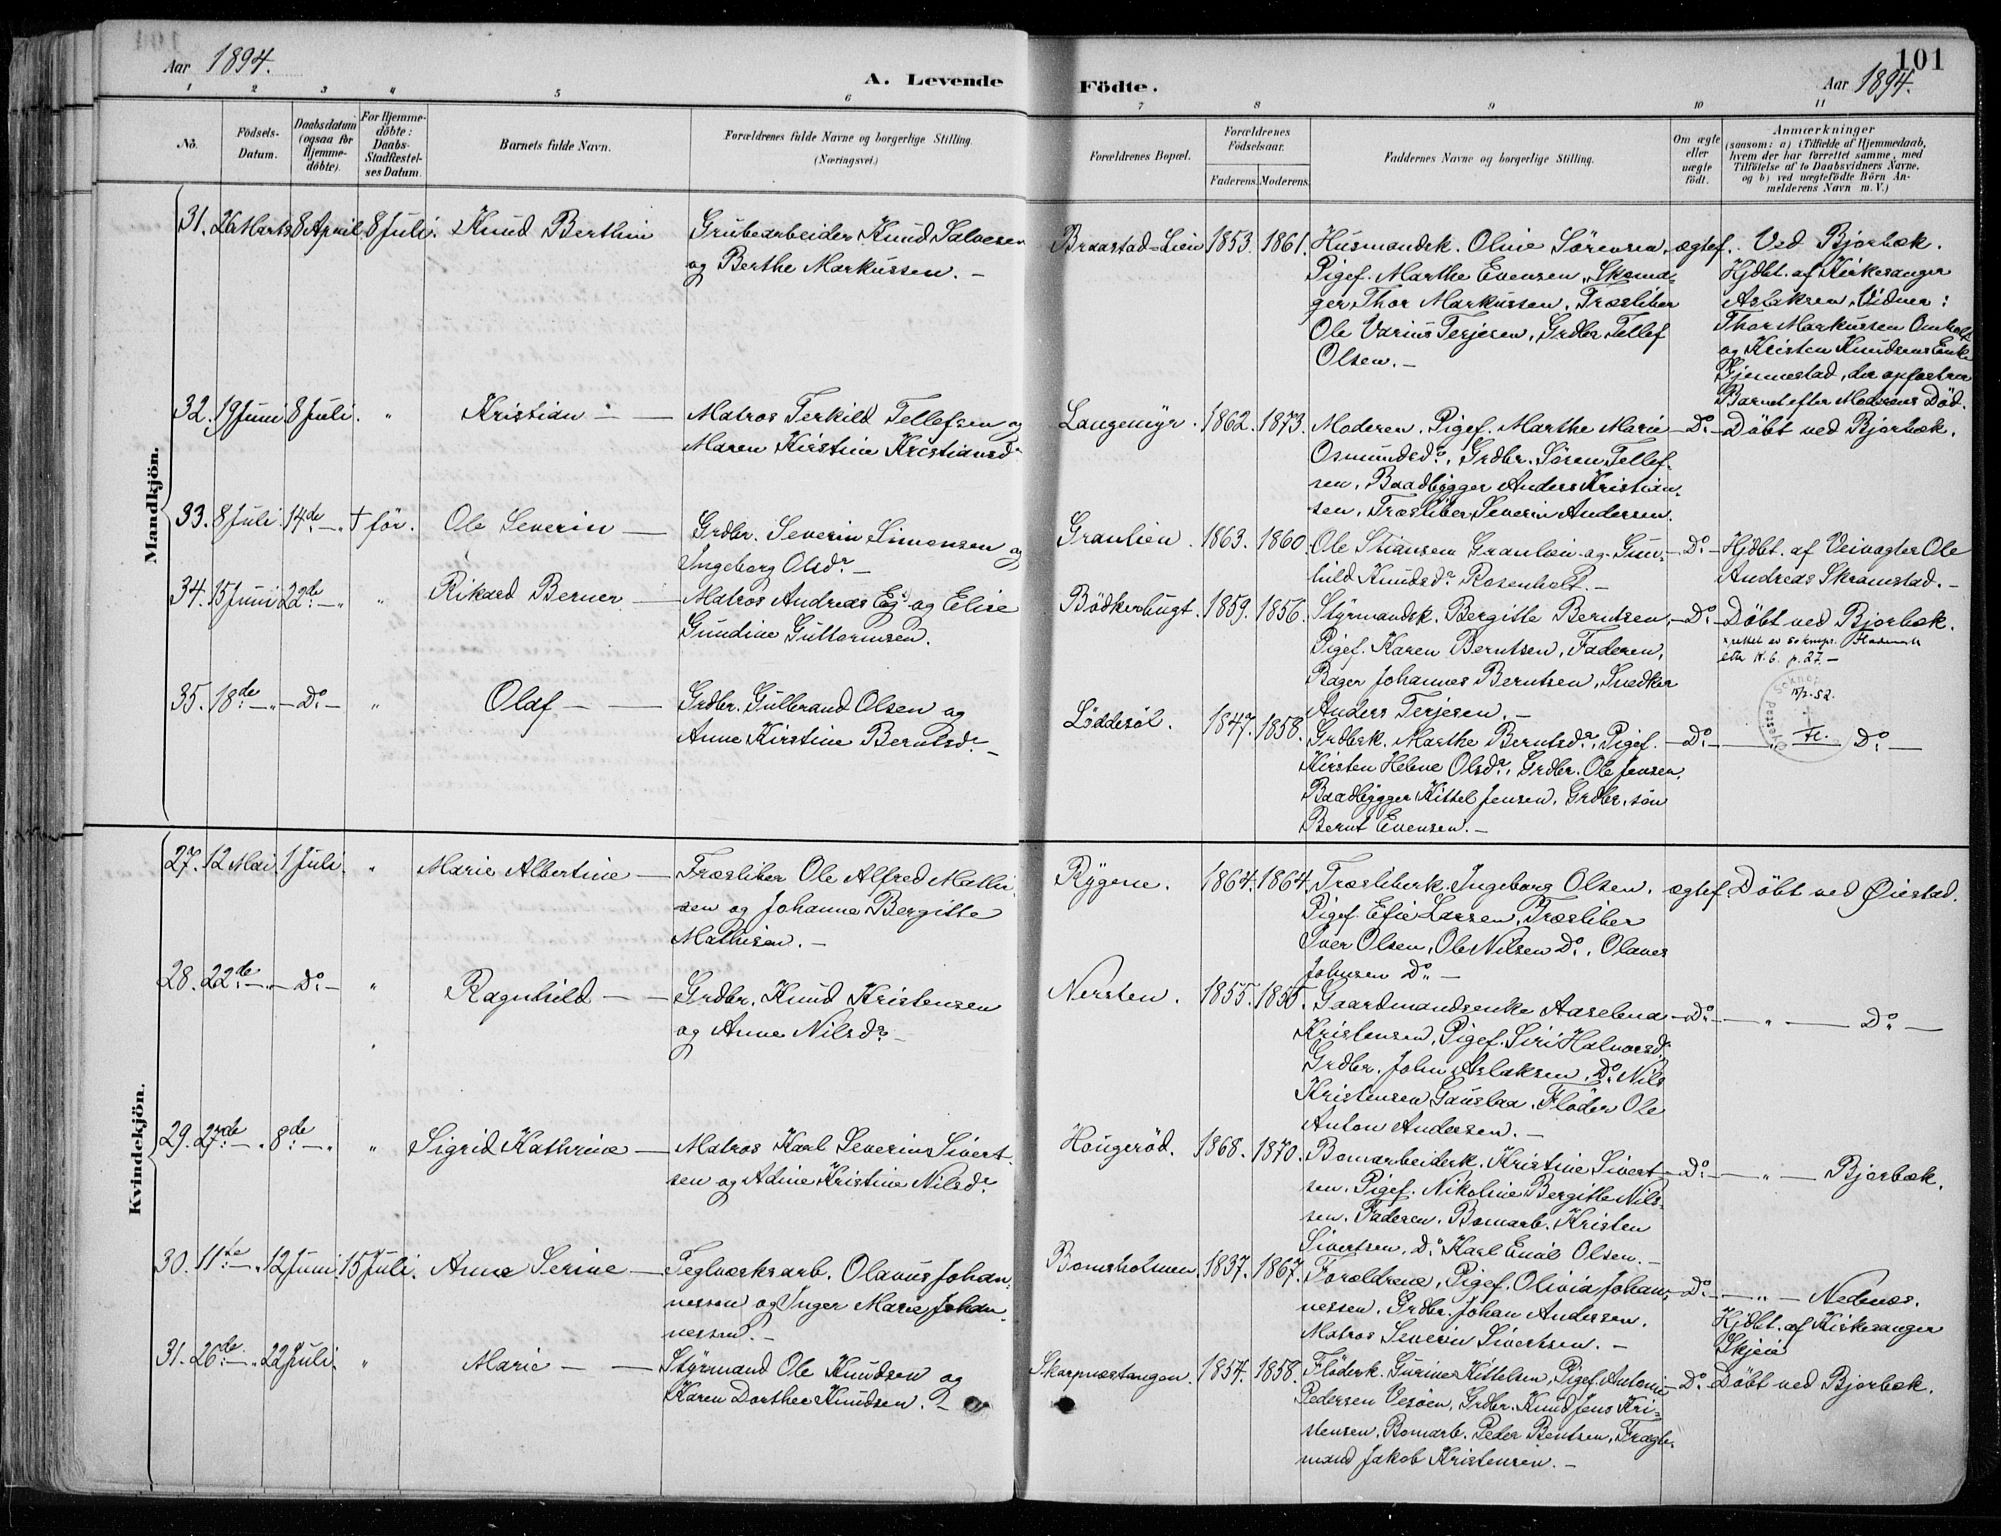 101
Aar 1894.
A. Levende
Födte.
Aar 1894.
1 2 3 4 5 6 7 8 9 10 11
No.
Födsels-
Datum.
Daabsdatum
(ogsaa for
Hjemme-
döbte).
For Hjemme-
döbte:
Daabs-
Stadfæstel-
ses Datum.
Barnets fulde Navn.
Forældrenes fulde Navne og borgerlige Stilling.
(Næringsvei.)
Forældrenes Bopæl.
Forældrenes
Födselsaar.
Faderens. Moderens.
Faddernes Navne og borgerlige Stilling.
Om ægte
eller
uægte
födt.
Anmærkninger
(saasom: a) i Tilfælde af Hjemmedaab,
hvem der har forrettet samme, med
Tilföielse af to Daabsvidners Navne,
og b) ved uægtefödte Börn An-
melderens Navn m. V.)
Mandkjön.
31. 26 Marts 8 April. 8 Juli. Knud Berthin
Grubearbeider Knud Salvesen
og Berthe Markussen. —
Braastad-Lien 1853. 1861.
Husmandsk. Oline Sörensen,
Pigef. Marthe Evensen, Skoma-
ger Thor Markussen, Træsliber
Ole Varius Terjesen, Grdbr. Tellef
Olsen. —
ægtef. Ved Bjorbæk.
Hjdbt. af Kirkesanger
Aslaksen, Vidner:
Thor Markussen Omholt
og Kristen Knudsens Enke
Fjennestad, der opfostrer
Barnet efter Moderens Död.
32. 19 Juni 8 Juli. " Kristian —
Matros Terkild Tellefsen og
Maren Kirstine Kristiansdr
Langemyr. 1862. 1873.
Moderen, Pigef. Marthe Marie
Osmundsdr., Grdbr. Sören Tellef-
sen, Baadbygger Anders Kristian-
sen, Træsliber Severin Andersen.
Do — Döbt ved Bjorbæk.
33. 8 Juli 14de — " † för. Ole Severin —
Grdbr. Severin Simonsen og
Ingeborg Olsdr. —
Granlien. 1863. 1860
Ole Stiansen Granlien og Gun-
hild Knudsdr. Rosenholt. —
Do — Hjdbt. af Veivogter Ole
Andreas Skramstad. —
34. 15 Juni 22de — " " Rikard Berner —
Matros Andreas Eg og Elise
Gundine Guttormsen.
Bödkerbugt. 1859. 1856.
Styrmandsk. Bergitte Berntsen,
Pigef. Karen Berntsen, Faderen,
Bager Johannes Berntsen, Snedker
Anders Terjesen. —
Do — Döbt ved Bjorbæk.
rettet av soknepr.
etter K. 6. p. 27. —
15/2-52.
Fl.
35. 18de — " — Do — " Olaf — —
Grdbr. Gulbrand Olsen og
Anne Kirstine Berntsdr. —
Löddesöl. 1847. 1858.
Grdbsk. Marthe Berntsdr., Pigef.
Kirsten Helene Olsdr., Grdbr. Ole Jensen,
Baadbygger Kittel Jensen, Grdbr. sön
Bernt Evensen. —
Do — Do —
Kvindekjön.
27. 12 Mai. 1 Juli. " Marie Albertine —
Træsliber Ole Alfred Mathi-
sen og Johanne Bergitte
Mathisen. —
Rygene. 1864. 1864.
Træsliberk. Ingeborg Olsen,
Pigef. Efie Larsen, Træsliber
Iver Olsen, Ole Nilsen Do., Olaves
Johnsen Do. —
ægtef. Döbt ved Öiestad.
28. 22de — " — Do — " Ragnhild — —
Grdbr. Knud Kristensen
og Anne Nilsdr. —
Nersten. 1855. 1855.
Gaardmandsenke Aaselena
Kristensen, Pigef. Siri Halvorsdr.
Grdbr. John Aslaksen, Do. Nils
Kristensen Gauslaa, Flöder Ole
Anton Andersen. —
Do — " — Do —
29. 27de — " 8de — " " Sigrid Kathrine —
Matros Karl Severin Sivert-
sen og Adine Kristine Nilsdr.
Hougeröd. 1868. 1870.
Bomarbeiderk. Kristine Sivert-
sen, Pigef. Nikoline Bergitte Nils-
sen, Faderen, Bomarb. Kristen
Sivertsen, Do. Karl Emil Olsen. —
Do — " — Bjorbæk.
30. 11te — " 12 Juni 15 Juli. Anna Serine —
Teglværksarb. Olavus Johan-
nessen og Inger Marie Johan-
nessen. —
Bomsholmen. 1837. 1867.
Forældrene, Pigef. Olivia Johan-
nessen, Grdbr. Johan Andersen,
Matros Severin Sivertsen. —
Do — " — Nedenæs.
Hjdbt. af Kirkesanger
Skjeie
31. 26de — " 22 Juli. " Marie — —
Styrmand Ole Knudsen og
Karen Dorthee Knudsen. —
Skarpnæstangen. 1854. 1858.
Flöderk. Gurine Kittelsen, Pigef. Antonie
Pedersen Vesöen, Grdbr. Knud Jens Kri-
stensen, Bomarb. Peder Bentsen, Fragte-
mand Jakob Kristensen. —
Do Döbt ved Bjorbæk.